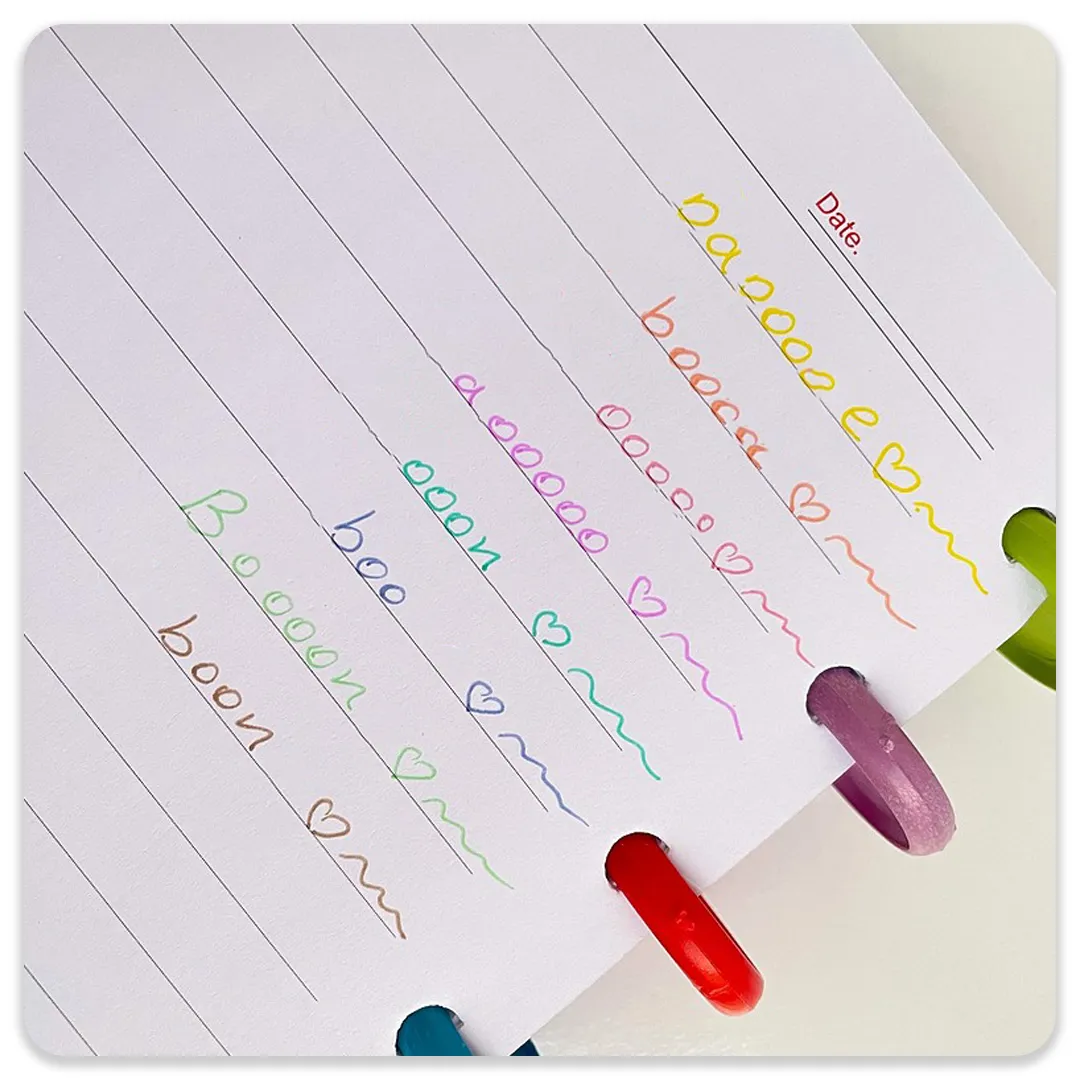 Date.
naoooo e ♡~
boocc ♡~
ooooo ♡~
aooooo ♡~
ooon ♡~
boo ♡~
Boooon ♡~
boon ♡~